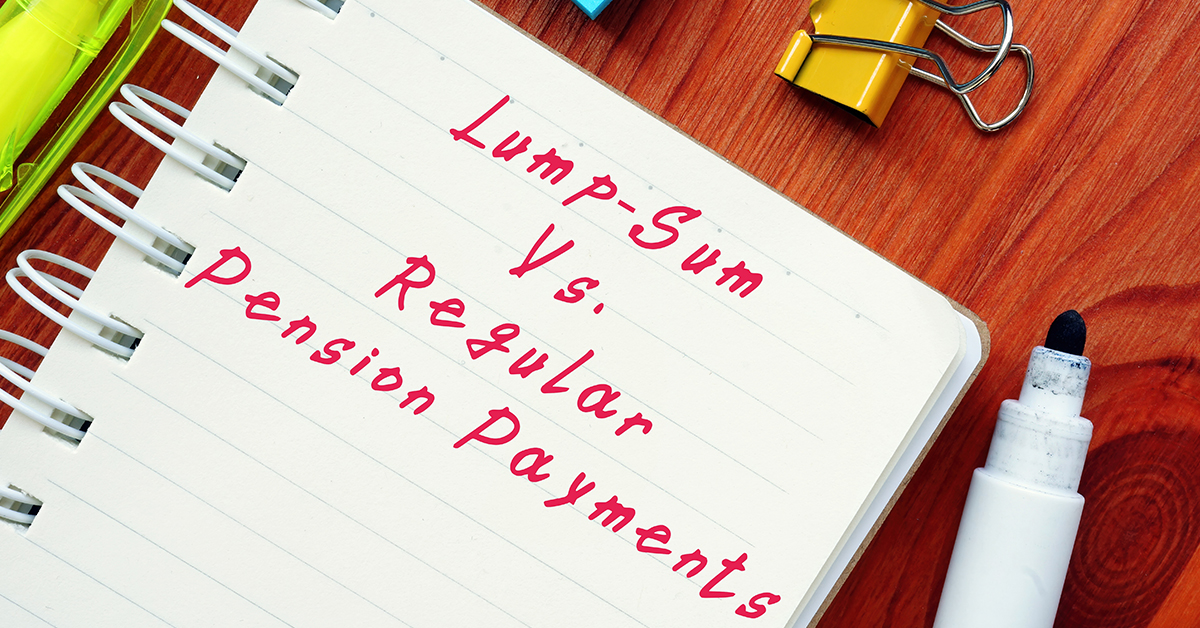 Lump-Sum
Vs.
Regular
Pension Payments